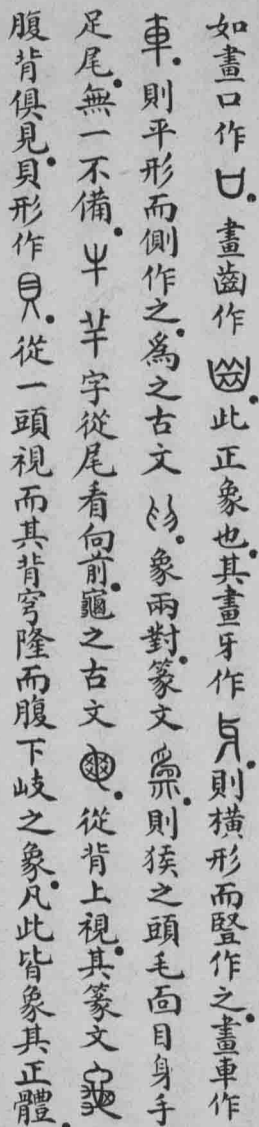 如畫口作𠙵。畫齒作𦥒。此正象也。其畫牙作⺒。則橫形而豎作之。畫車作
車。則平形而側作之。為之古文。象兩對。篆文爲。則猴之頭毛面目身手
足尾。無一不備。牛羊字從尾看向前。龜之古文。從背上視。其篆文龜
腹背俱見。貝形作貝。從一頭視而其背穹隆而腹下岐之象。凡此皆象其正體。